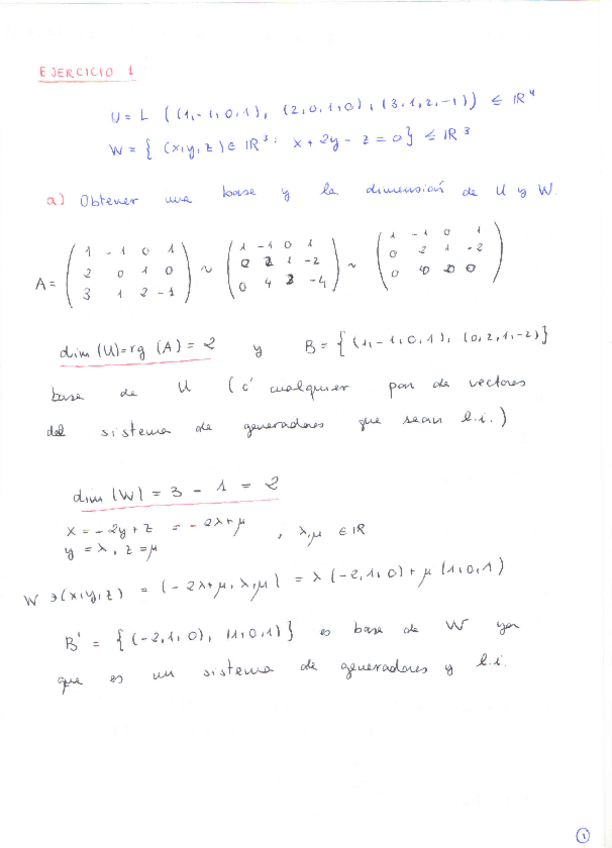 EJERCICIO 1
U = L ((1,-1,0,1), (2,0,1,0), (3,1,2,-1)) ≤ IR⁴
W = { (x,y,z) ∈ IR³ : x + 2y - z = 0 } ≤ IR³
a) Obtener una base y la dimensión de U y W.
A = ( 1 -1 0 1 ) ~ ( 1 -1 0 1 ) ~ ( 1 -1 0 1 )
( 2 0 1 0 ) ( 0 2 1 -2 ) ( 0 2 1 -2 )
( 3 1 2 -1 ) ( 0 4 2 -4 ) ( 0 0 0 0 )
dim (U) = rg (A) = 2 y B = { (1,-1,0,1), (0,2,1,-2) }
base de U (ó cualquier par de vectores
del sistema de generadores que sean l.i.)
dim (W) = 3 - 1 = 2
x = -2y + z = -2λ+μ
y = λ, z = μ , λ,μ ∈ IR
W ∋ (x,y,z) = (-2λ+μ, λ, μ) = λ (-2,1,0) + μ (1,0,1)
B' = { (-2,1,0), (1,0,1) } es base de W ya
que es un sistema de generadores y l.i.
1